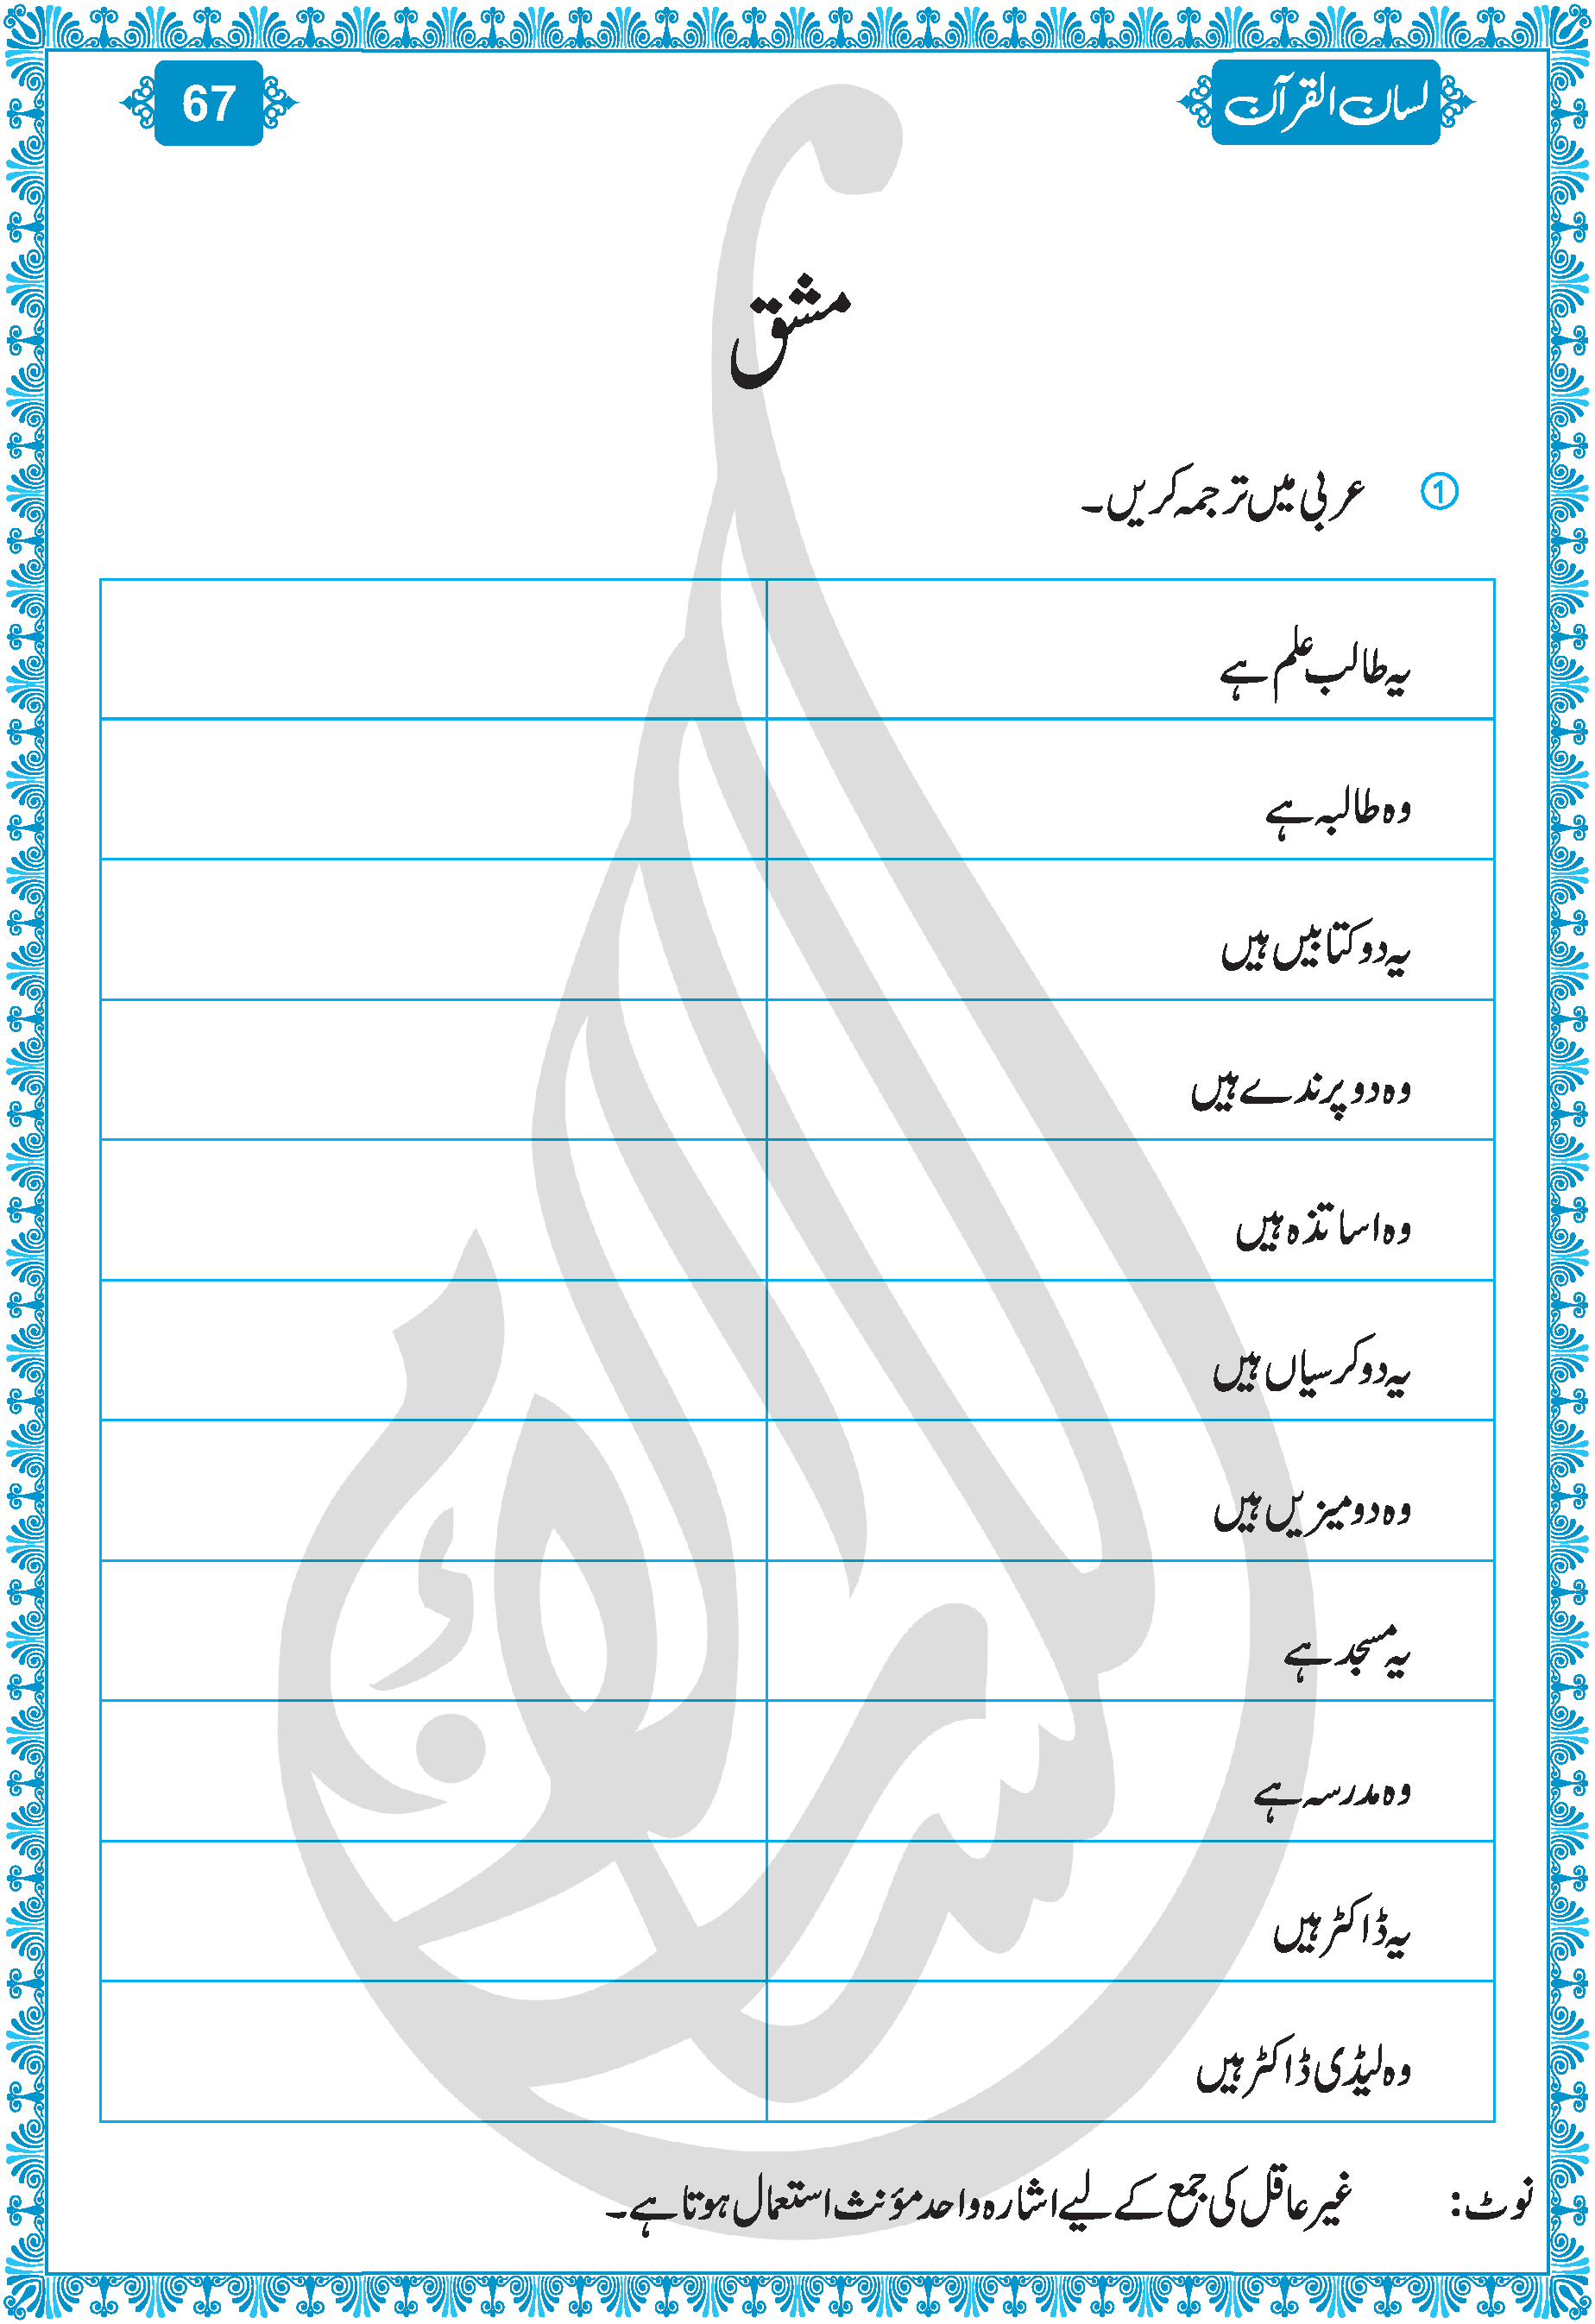 لسان القرآن
67
مشق
1 عربی میں ترجمہ کریں۔
یہ طالب علم ہے
وہ طالبہ ہے
یہ دو کتابیں ہیں
وہ دو پرندے ہیں
وہ اساتذہ ہیں
یہ دو کرسیاں ہیں
وہ دو میزیں ہیں
یہ مسجد ہے
وہ مدرسہ ہے
یہ ڈاکٹر ہیں
وہ لیڈی ڈاکٹر ہیں
نوٹ: غیر عاقل کی جمع کے لیے اشارہ واحد مؤنث استعمال ہوتا ہے۔